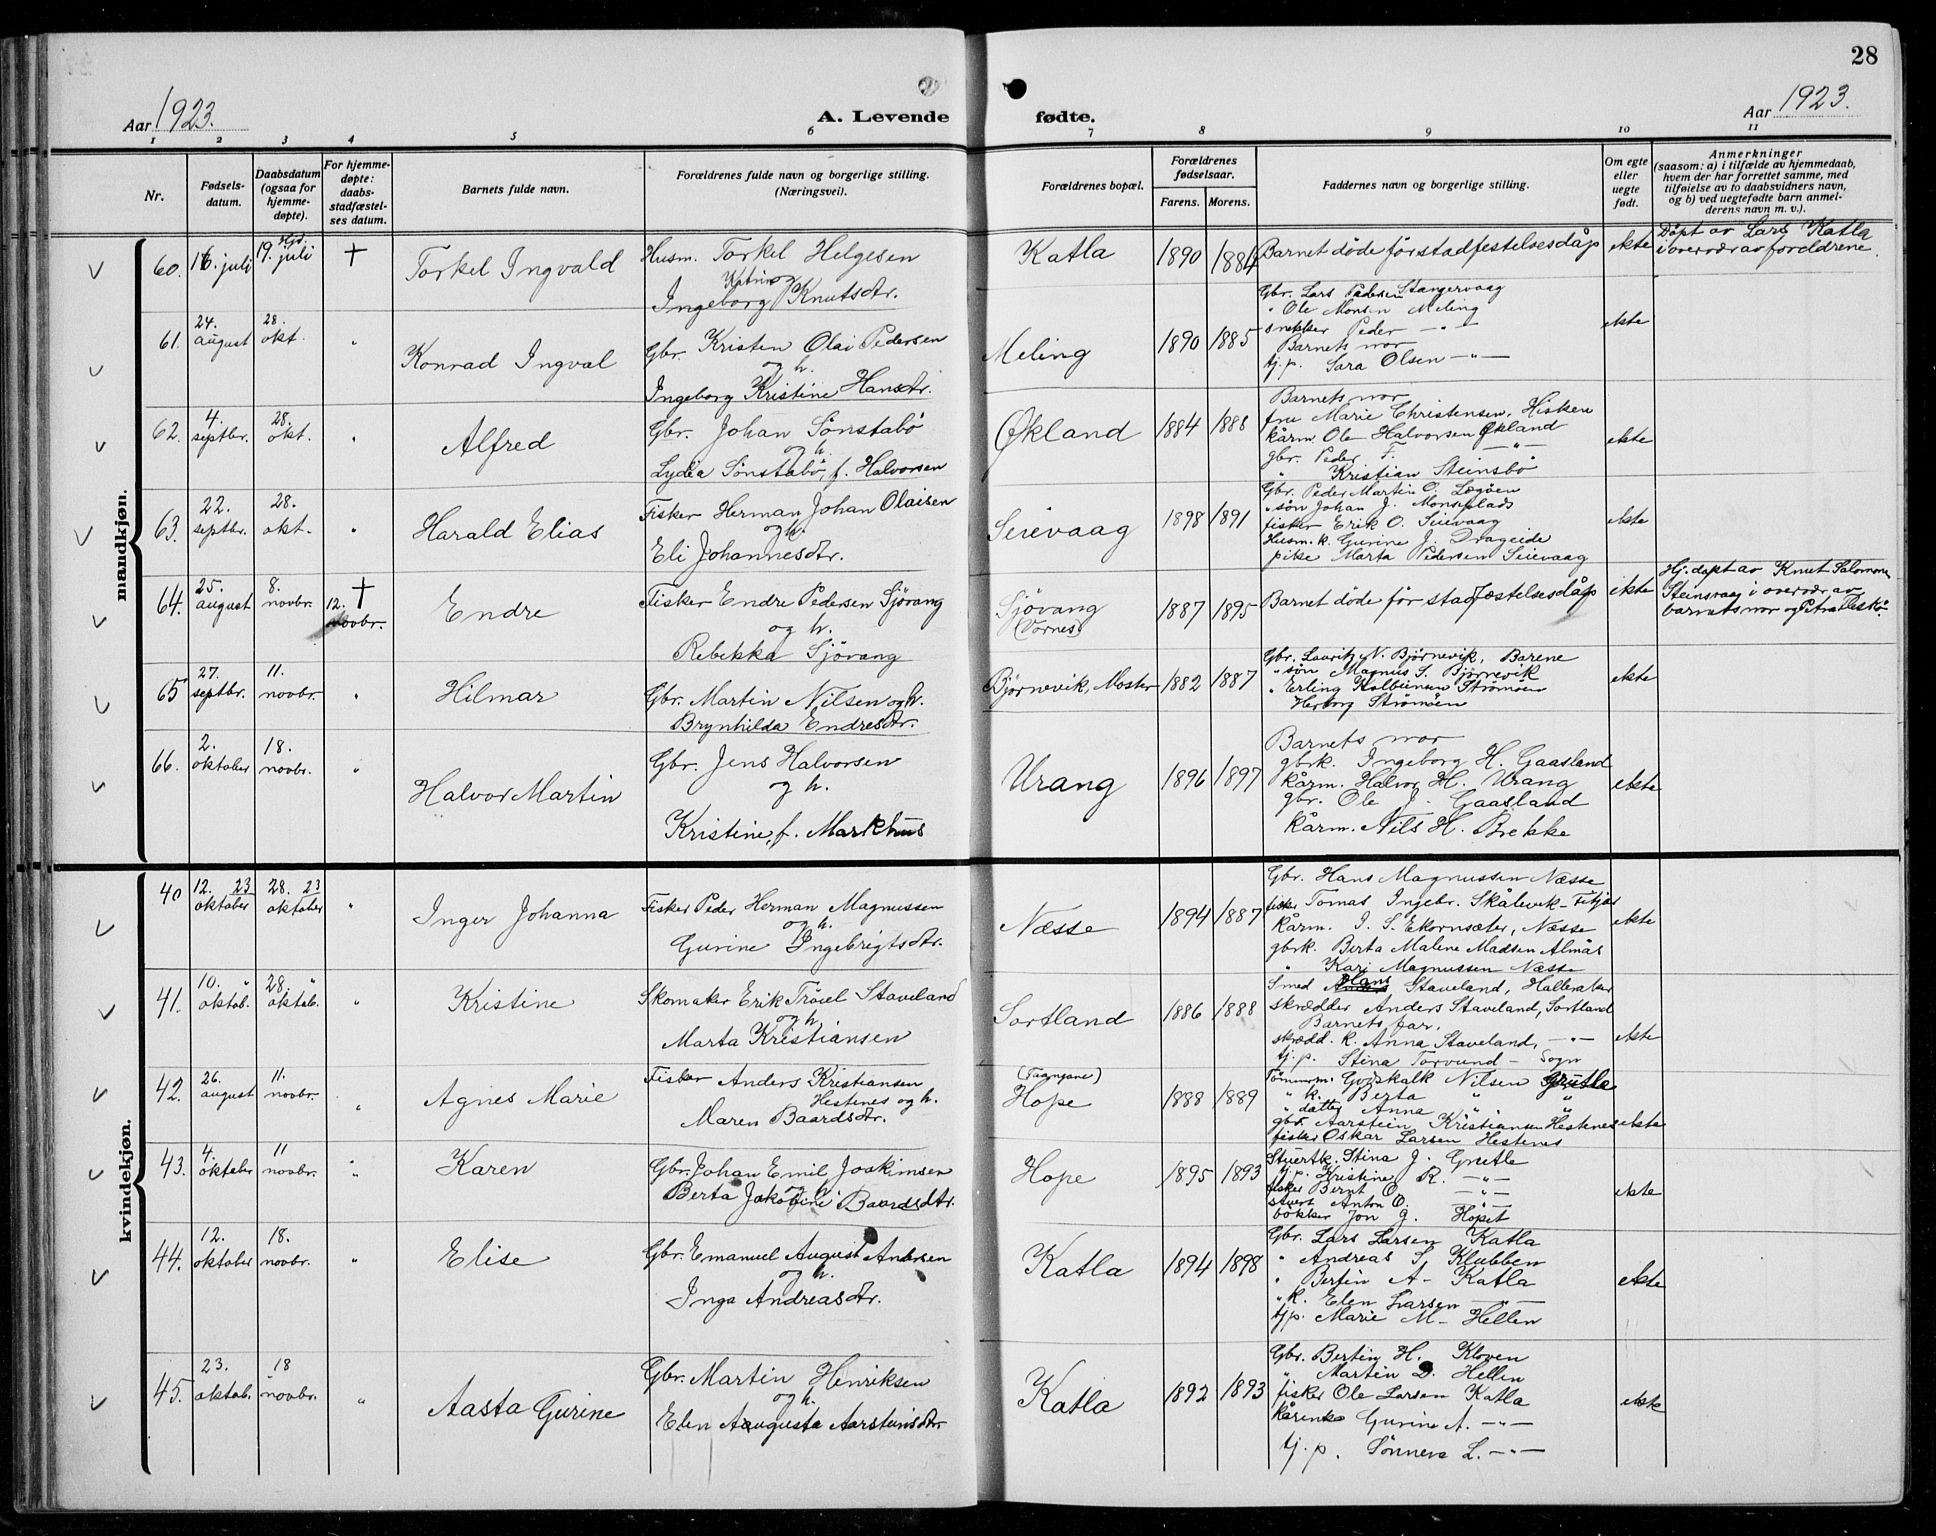 28
Aar 1923.
A. Levende fødte.
Aar 1923.
1 2 3 4 5 6 7 8 9 10 11
Nr.
Fødsels-
datum.
Daabsdatum
(ogsaa for
hjemme-
døpte).
For hjemme-
døpte:
daabs-
stadfæstel-
ses datum.
Barnets fulde navn.
Forældrenes fulde navn og borgerlige stilling.
(Næringsvei).
Forældrenes bopæl.
Forældrenes
fødselsaar.
Farens. Morens.
Faddernes navn og borgerlige stilling.
Om egte
eller
uegte
født.
Anmerkninger
(saasom: a) i tilfælde av hjemmedaab,
hvem der har forrettet samme, med
tilføielse av to daabsvidners navn,
og b) ved uegtefødte barn anmel-
derens navn m. v.).
mandkjøn.
60. 16. juli 19. juli †
Torkel Ingvald
Husm. Torkel Helgesen
og
Ingeborg Katrine Knutsdtr.
Katla 1890 1884
Barnet døde før stadfestelsesdåp
ekte
Døpt av Lars Katla
i overvær av foreldrene.
61. 24. august 28. okt. "
Konrad Ingval
Gbr. Kristen Olai Pedersen
og h.
Ingeborg Kristine Hansdtr.
Meling 1890 1885
Gbr. Lars Pedersen Stangervaag
" Ole Monsen Meling
snekker Peder — " —
Barnets mor
tj. p. Sara Olsen — " —
ekte
62. 4. septbr. 28. okt. "
Alfred
Gbr. Johan Sønstabø
og h.
Lydia Sønstabø, f. Halvorsen
Økland 1884 1888
Barnets mor
fru Marie Christensen, Hisken
kårm. Ole Halvorsen Økland
gbr. Peder F. — " —
" Kristian Steinsbø
ekte
63. 22. septbr. 28. okt. "
Harald Elias
Fisker Herman Johan Olaisen
og h.
Eli Johannesdtr.
Seievaag 1898 1891
Gbr. Peder Martin O. Løgøen
" søn Johan J. Monsplads
fisker Erik O. Seievaag
Husm. k. Gurine J. Drageide
pike Marta Pedersen Seievaag
ekte
64. 25. august 8. novbr. 12. novbr. †
Endre
Fisker Endre Pedersen Sjövang
og h.
Rebekka Sjövang
Sjövang
(Vornes) 1887 1895
Barnet døde før stadfæstelsesdåp
ekte
Hj. døpt av Knut Salomons
Steinsvaag i overvær av
barnets mor og
65 27. septbr. 11. novbr. "
Hilmar
Gbr. Martin Nilsen og h.
Brynhilda Endresdtr.
Bjørnevik, Moster 1882 1887
Gbr. Lauritz N. Bjørnevik, Barene
" søn Magnus S. Bjørnevik
" Erling Kolbeinsen Strømøen
Herborg Strømøen
ekte
66. 2. oktober 18. novbr. "
Halvor Martin
Gbr. Jens Halvorsen
og h.
Kristine, f. Markhus
Urang 1896 1897
Barnets mor
gbrk. Ingeborg H. Gaasland
kårm. Halvor H. Urang
gbr. Ole J. Gaasland
kårm. Nils H. Brekke
ekte
kvindekjøn.
40 12. 23 oktober 28. 23 oktober "
Inger Johanna
Fisker Peder Herman Magnussen
og h.
Gurine Ingebrigtsdtr.
Næsse 1894 1887
Gbr. Hans Magnussen Næsse
fisk Tomas Ingebr. Skålevik - Fitjar
kårm. I. S. Ekornsæter, Næsse
gbrk. Berta Malene Madsen Almås
" Kari Magnussen Næsse
ekte
41. 10. " oktob. 28. " oktob. "
Kristine
Skomaker Erik Troiel Staveland
og h.
Marta Kristiansen
Sortland 1886 1888
Smed Hans Staveland, Halleraker
skrædder Anders Staveland, Sortland
Barnets far.
skrædd. k. Anna Staveland, — " —
tj. p. Stina Torvund - Sogn
ekte
42. 26. august 11. novbr. "
Agnes Marie
Fisker Anders Kristiansen
Hestenes og h.
Maren Baardsdtr.
Hope 1888 1889
Tømmerm. Godskalk Nilsen Grutle
" k. Berta " "
" datter Anna " "
gbr. Aarstein Kristiansen Hestenes
fisker Oskar Larsen Hestenes
ekte
43. 4. oktober 11 novbr. "
Karen
Gbr. Johan Emil Joakimsen
og h.
Berta Jakobine Baardsdtr.
Hope 1895 1893
Stuertk. Stina J. Grutle
tj. p. Kristine R. — " —
fisker Bernt O. — " —
stuert Anton O. — " —
bökker Jon G. Hopet
ekte
44. 12. oktober 18. novbr. "
Elise
Gbr. Emanuel August Andersen
og h.
Inga Andreasdtr.
Katla 1894 1898
Gbr. Lars Larsen Katla
" Andreas S. Klubben
" Bertin A - Katla
" k. Elen Larsen — " —
tjp. Marie M - Hellen
ekte
45. 23. oktob. 18 novbr. "
Aasta Gurine
Gbr. Martin Henriksen
og h.
Elen Augusta Aarsteinsdtr
Katla 1892 1893
Gbr. Bertin H. Kloven
" Martin D. Hellen
fisker Ole Larsen Katla
kårenke Gurine A. — " —
tj. p. Sönneva L. — " —
ekte